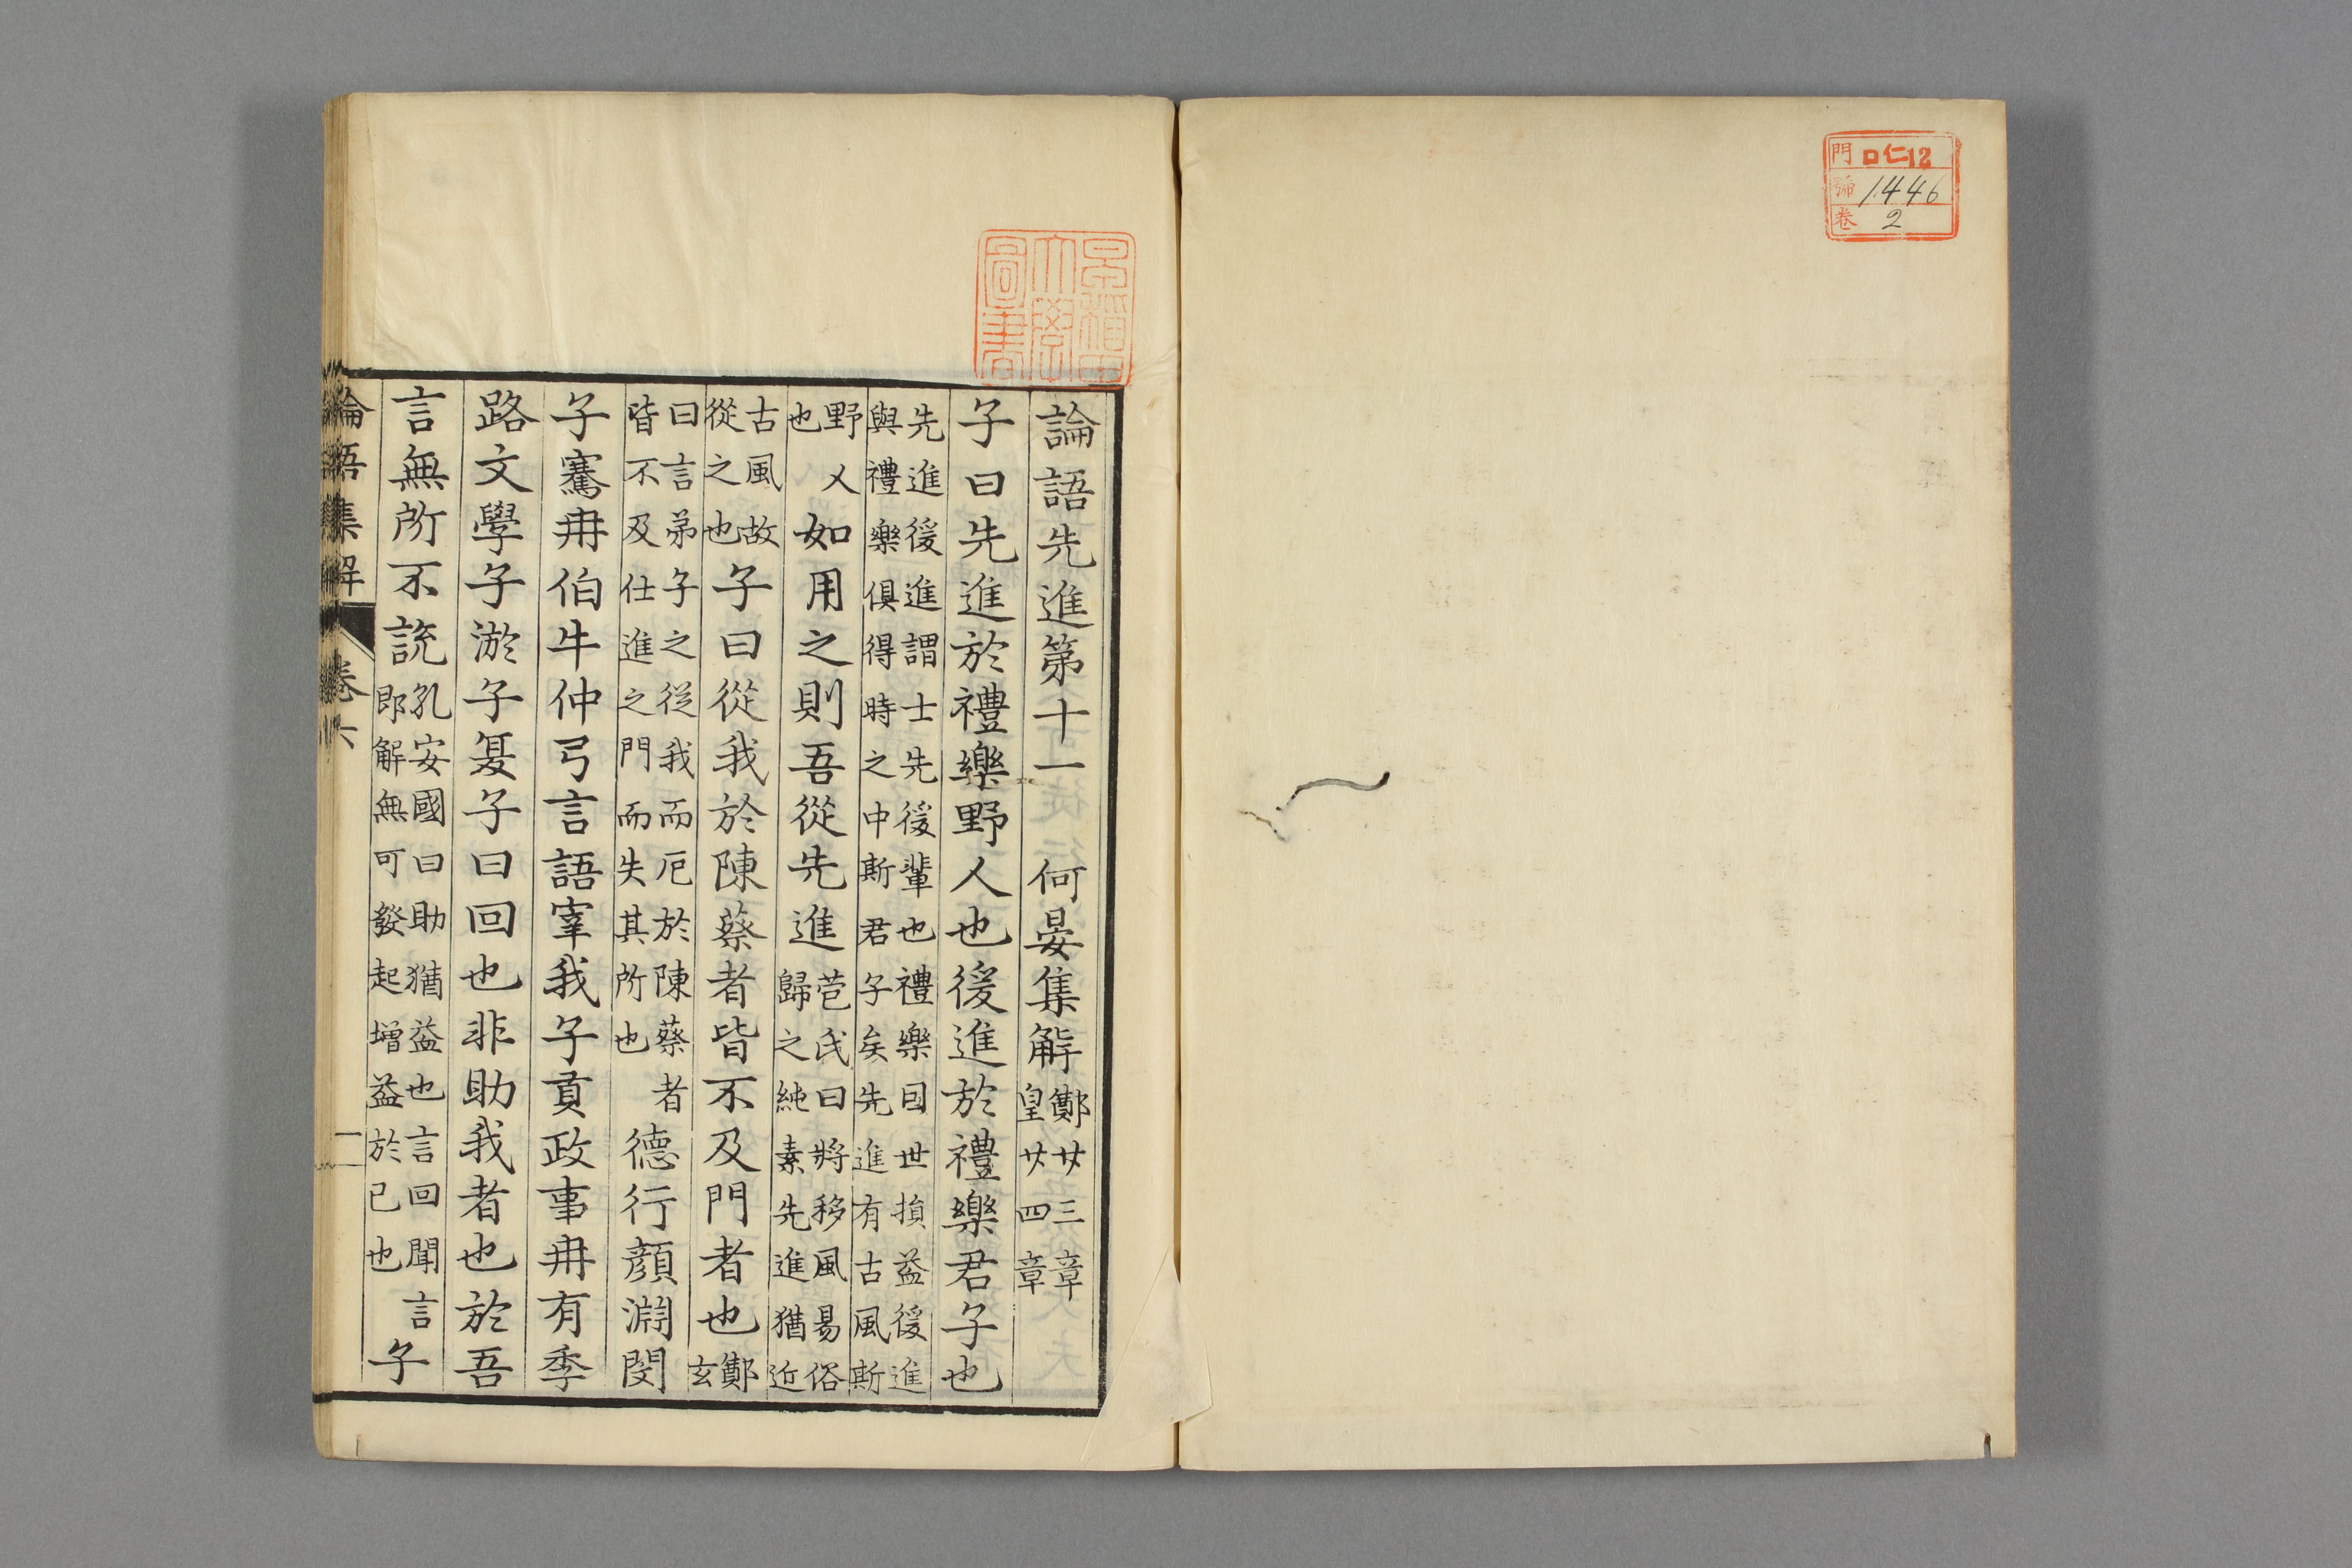 門 ロ仁12
號 1446
卷 2
早稲田大學圖書
論語先進第十一 何晏集解 鄭廿三章 皇廿四章
子曰先進於禮樂野人也後進於禮樂君子也
先進後進謂士先後輩也禮樂因世損益後進
與禮樂俱得時之中斯君子矣先進有古風斯
野人
也
如用之則吾從先進
苞氏曰將移風易俗
歸之純素先進猶近
古風故
從之也
子曰從我於陳蔡者皆不及門者也
鄭
玄
曰言弟子之從我而厄於陳蔡者
皆不及仕進之門而失其所也
德行顏淵閔
子騫冉伯牛仲弓言語宰我子貢政事冉有季
路文學子游子夏子曰回也非助我者也於吾
言無所不說
孔安國曰助猶益也言回聞言
即解無可發起增益於己也
子
論語集解 卷六 一